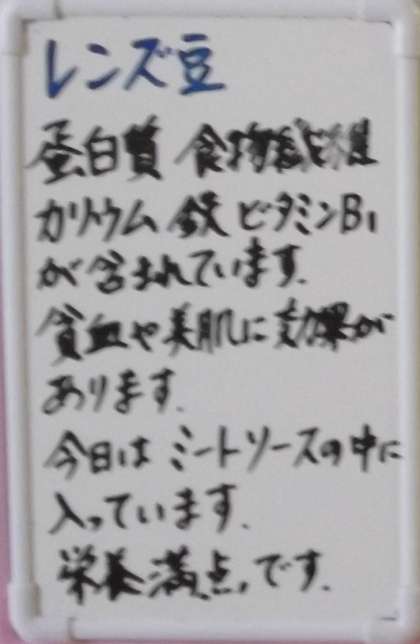 レンズ豆
蛋白質 食物繊維
カリウム 鉄 ビタミンB1
が含まれています.
貧血や美肌に効果が
あります.
今日は ミートソースの中に
入っています.
栄養満点.です.